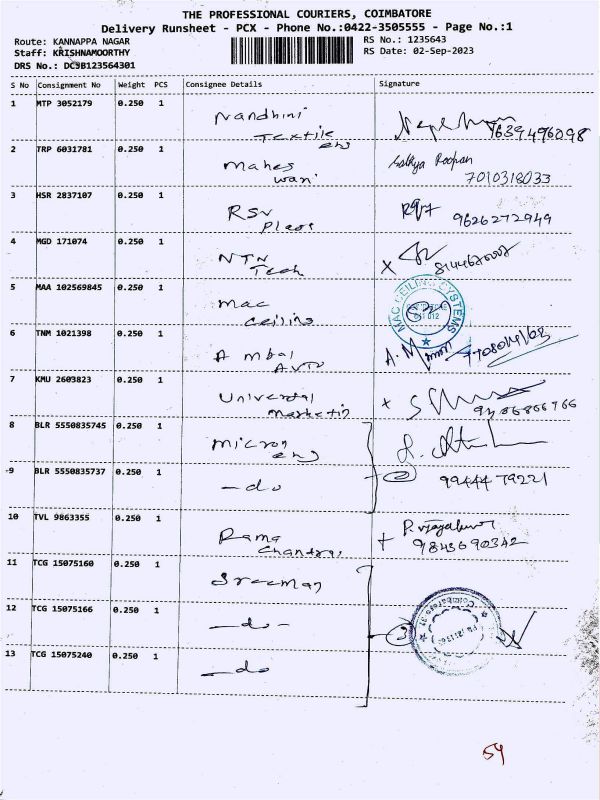 THE PROFESSIONAL COURIERS, COIMBATORE
Delivery Runsheet - PCX - Phone No.:0422-3505555 - Page No.:1
Route: KANNAPPA NAGAR
RS No.: 1235643
Staff: KRISHNAMOORTHY
RS Date: 02-Sep-2023
DRS No.: DCSB123564301
S No Consignment No Weight PCS Consignee Details Signature
1 MTP 3052179 0.250 1 Nandhini
Textile
eng
9639496098
2 TRP 6031781 0.250 1 Mahes
wari
Sathya Roopan
7010318033
3 HSR 2837107 0.250 1 RSV
9626272949
4 MGD 171074 0.250 1 NTN
Tech
X
5 MAA 102569845 0.250 1 Mac
Ceiling
MAC CEILING SYSTEMS
6 TNM 1021398 0.250 1 Ambal
Auto
7 KMU 2603823 0.250 1 Universal
Marketin
x
8 BLR 5550835745 0.250 1 Micron
eng
9 BLR 5550835737 0.250 1 -do
2
9944479221
10 TVL 9863355 0.250 1 Rama
Chandra
P. Vijayakumar
9843690342
11 TCG 15075160 0.250 1 Sreeman
12 TCG 15075166 0.250 1 -do-
3
13 TCG 15075240 0.250 1 -do
54